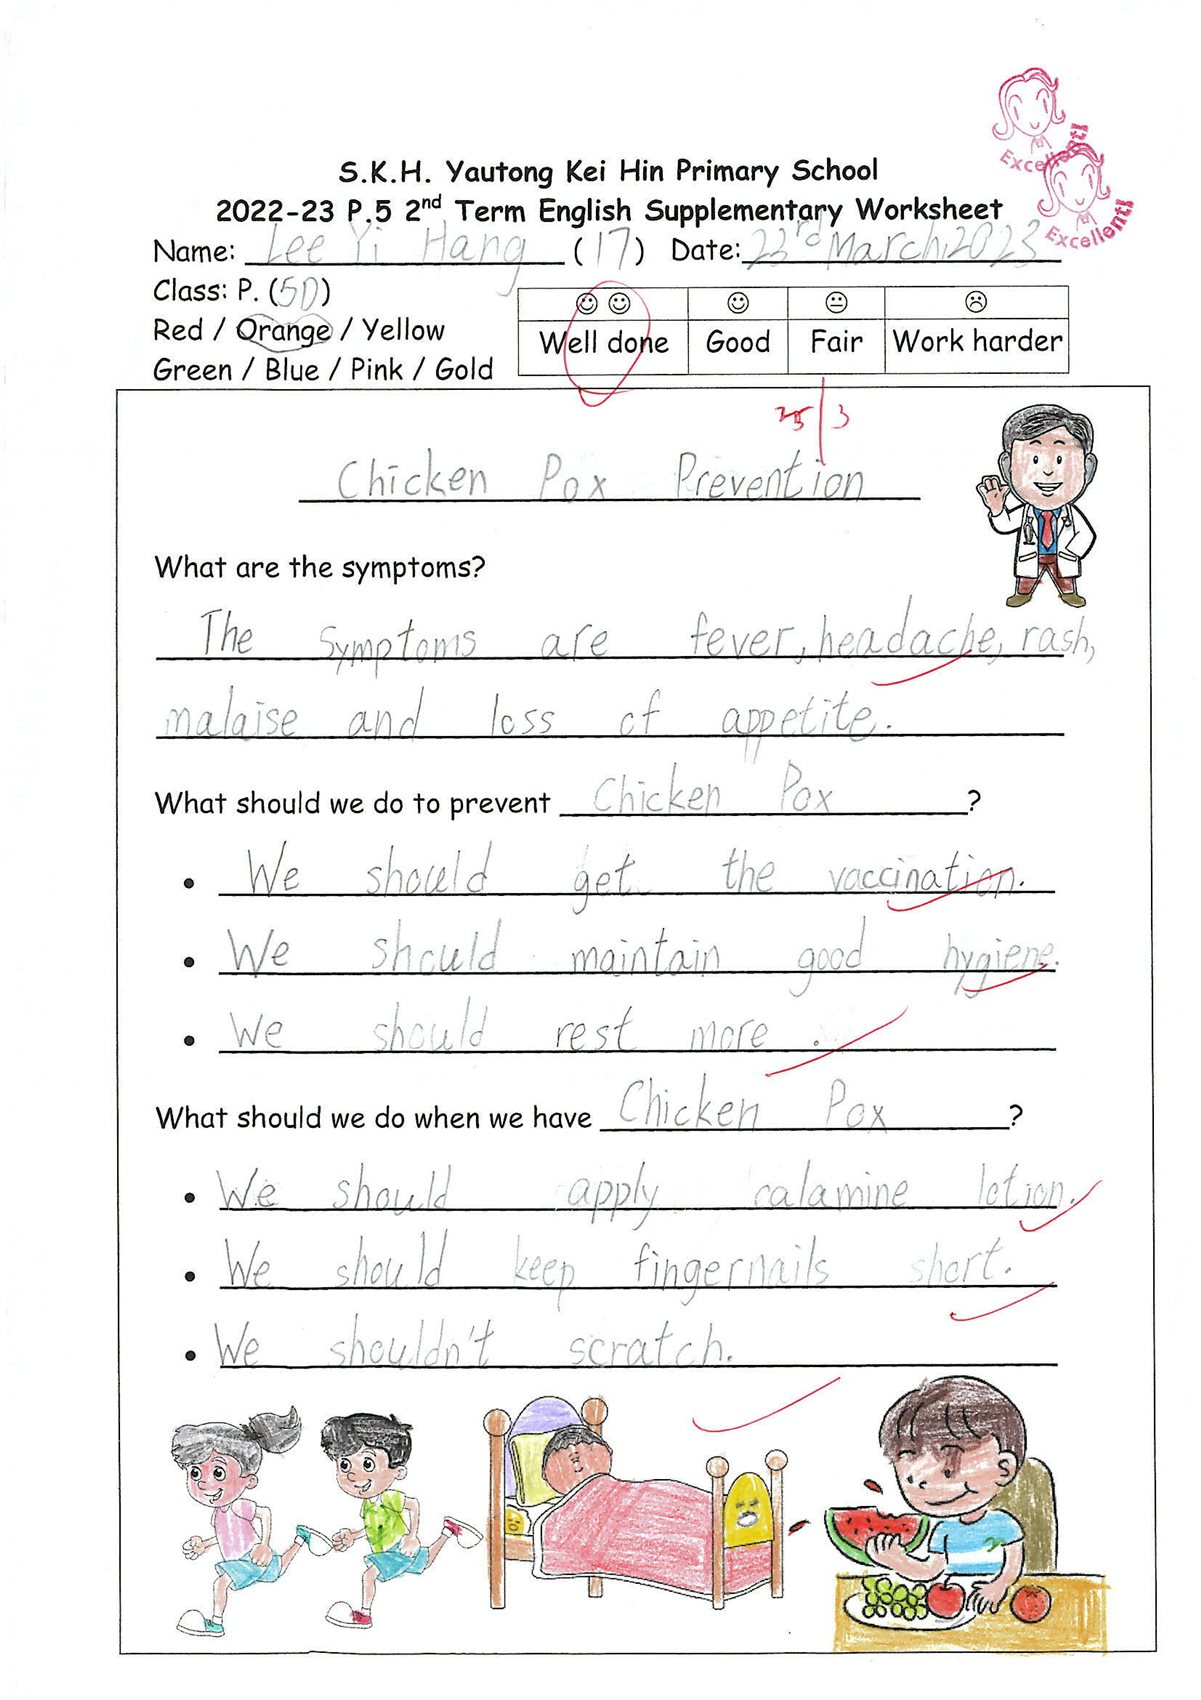 Excellent!
Excellent!
S.K.H. Yautong Kei Hin Primary School
2022-23 P.5 2nd Term English Supplementary Worksheet
Name: Lee Yi Hang (17) Date: 23rd March, 2023
Class: P. (5D)
Red / Orange / Yellow
Green / Blue / Pink / Gold
Well done Good Fair Work harder
3
Chicken Pox Prevention
What are the symptoms?
The symptoms are fever, headache, rash,
malaise and loss of appetite.
What should we do to prevent Chicken Pox ?
• We should get the vaccination.
• We should maintain good hygiene.
• We should rest more .
What should we do when we have Chicken Pox ?
• We should apply calamine lotion.
• We should keep fingernails short.
• We shouldn't scratch.